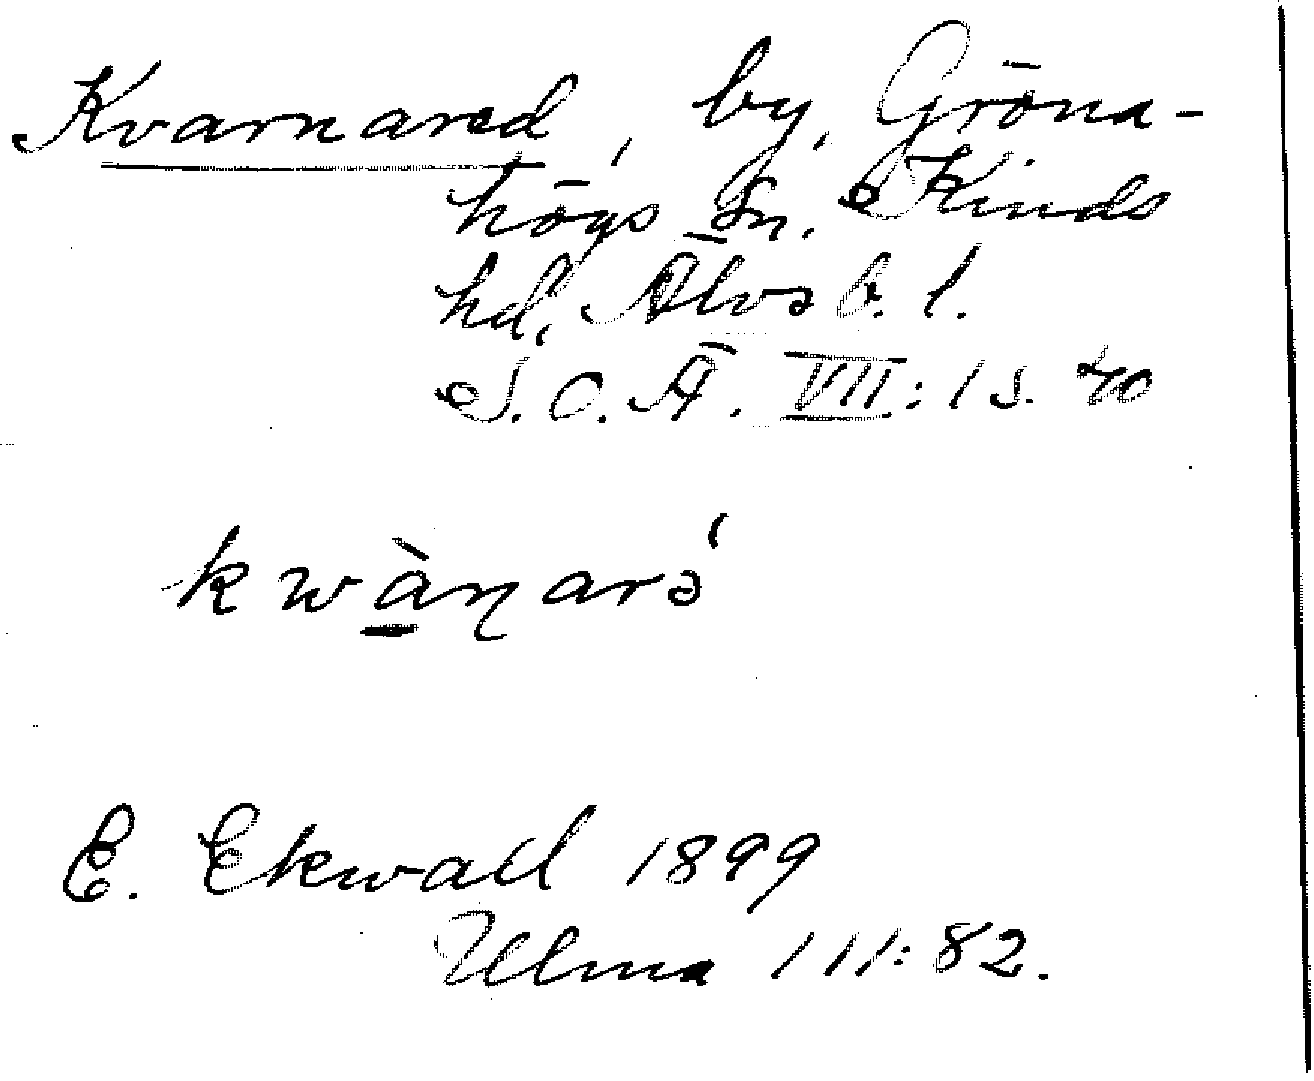 Kvarnared, by, Gröna-
högs sn. Kinds
hd, Älvsb. l.
S.O.Ä. VII: 1 s. 40
kwàn̦arə́
E. Ekwall 1899
Ulma 111:82.